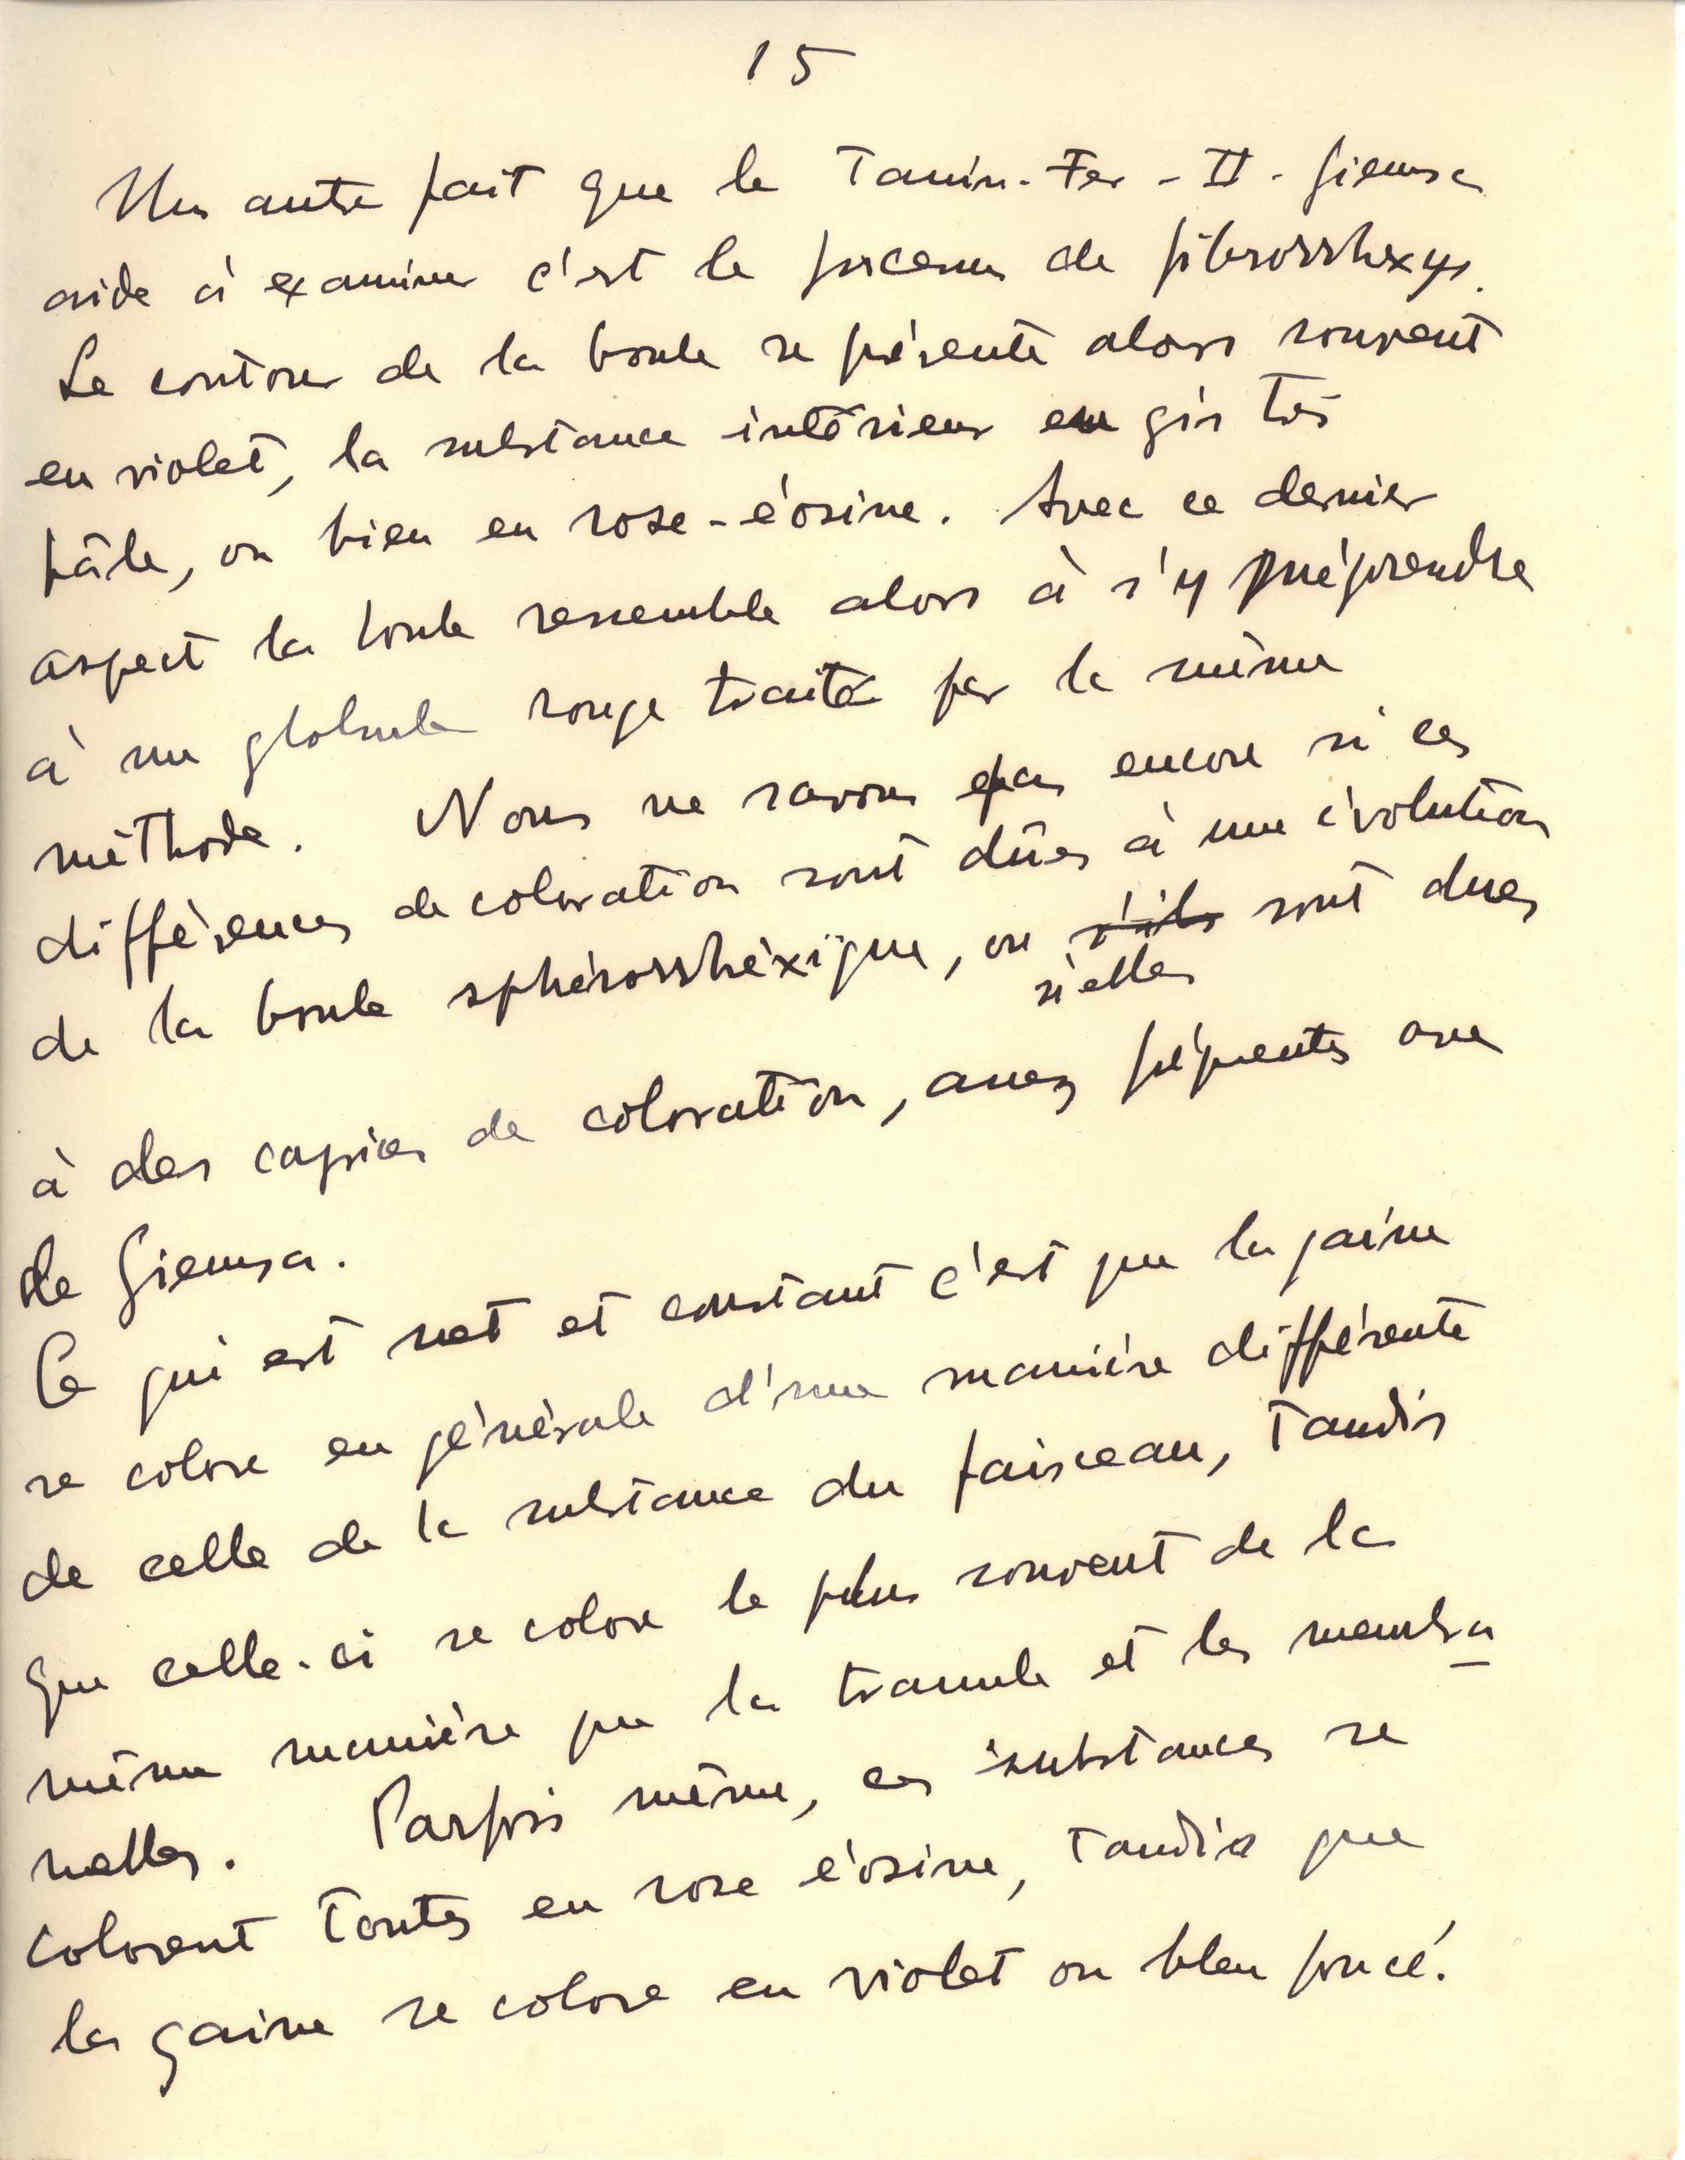 15
Un autre fait que le Tanin-Fer-II-Giemsa
aide à examiner c'est le processus de fibrorrhexys.
Le contour de la boule se présente alors souvent
en violet, la substance intérieur en gris très
pâle, ou bien en rose-éosine. Avec ce dernier
aspect la boule ressemble alors à s'y méprendre
à un globule rouge traité par la même
méthode. Nous ne savons pas encore si ces
différences de coloration sont dûes à une évolution
de la boule sphérorrhéxique, ou s'ils sont dues
si elles
à des caprices de coloration, assez fréquentes avec
le Giemsa.
Ce qui est net et constant c'est que la gaine
se colore en générale d'une manière différente
de celle de la substance du faisceau, tandis
que celle-ci se colore le plus souvent de la
même manière que la tramule et les membra
nelles. Parfois même, ces substances se
colorent toutes en rose éosine, tandis que
la gaine se colore en violet ou bleu foncé.